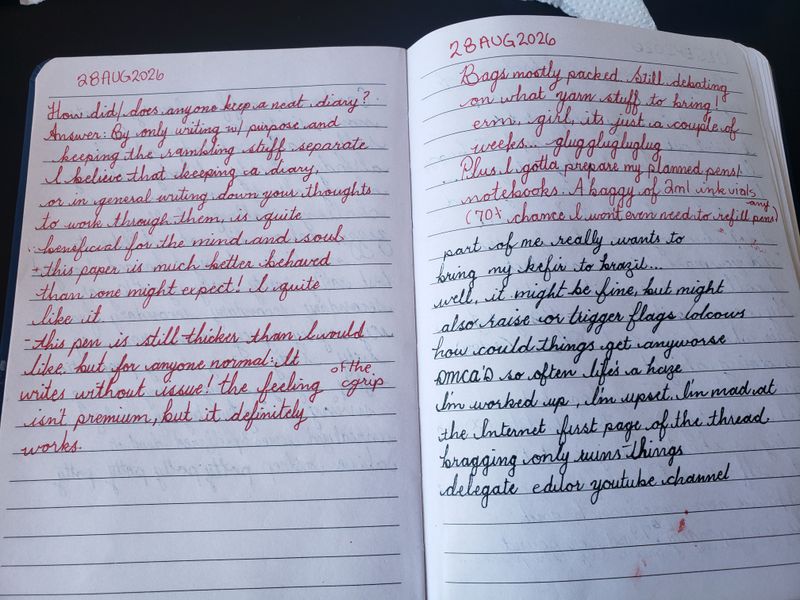 28AUG2026
How did/does anyone keep a neat diary?
Answer: By only writing w/ purpose and
keeping the rambling stuff separate
I believe that keeping a diary,
or in general writing down your thoughts
to work through them, is quite
beneficial for the mind and soul
+ this paper is much better behaved
than one might expect! I quite
like it
- this pen is still thicker than I would
like, but for anyone normal: It
writes without issue! the feeling of the cgrip
isn't premium, but it definitely
works.
28AUG2026
Bags mostly packed. Still debating
on what yarn stuff to bring!
erm, girl, its just a couple of
weeks... glugglugluglug
Plus I gotta prepare my planned pens/
notebooks. A baggy of 2ml ink vials
(70% chance I won't even need to refill any pens)
part of me really wants to
bring my kefir to brazil...
well, it might be fine, but might
also raise or trigger flags lolcows
how could things get anyworse
DMCA'D so often life's a haze
I'm worked up, I'm upset, I'm mad at
the Internet first page of the thread
bragging only ruins things
delegate editor youtube channel